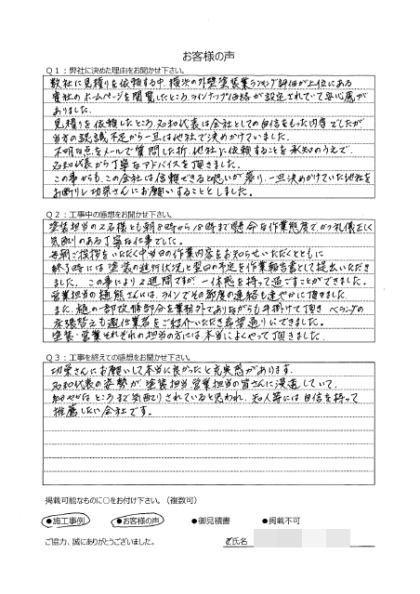 お客様の声
Q1：弊社に決めた理由をお聞かせ下さい。
数社に見積りを依頼する中、横浜の外壁塗装業ランキング評価が上位にある
貴社のホームページを閲覧したところ ラインナップ価格が設定されていて安心感が
ありました。
見積りを依頼したところ 石和代表は会社としての自信をもった内容でしたが
当方の認識不足から一旦は他社で決めかけていました。
不明な点をメールで質問した折、他社に依頼することを承知のうえで、
石和代表から丁寧なアドバイスを頂きました。
この事からも、この会社は信頼できるとの思いが募り、一旦決めかけていた他社を
お断りし 功栄さんにお願いすることとしました。
Q2：工事中の感想をお聞かせ下さい。
塗装担当の2名様とも朝8時から18時まで懸命な作業態度で、かつ礼儀正しく
気配りのある丁寧な仕事でした。
毎朝ご挨拶をいただく中 当日の作業内容をお知らせいただくとともに
終了時には塗装の進行状況と翌日の予定を作業報告書として提出いただき
ました。この事により2週間ですが 一体感を持って過ごすことができました。
営業担当の さんには、ラインでその都度の連絡も速やかに頂けました。
また、樋の一部改修部分を業務外でありながらも手掛けて頂き ベランダの
張替えも 業者をご紹介いただき希望通りにできました。
塗装・営業それぞれの担当の方には本当によくやって頂きました。
Q3：工事を終えての感想をお聞かせ下さい。
功栄さんにお願いして本当に良かったと充実感があります。
石和代表の姿勢が 塗装担当 営業担当の皆さんに浸透していて、
ところまで気配りされていると思われ、知人等には自信を持って
推薦したい会社です。
掲載可能なものに○をお付け下さい。（複数可）
●施工事例 ●お客様の声 ●御見積書 ●掲載不可
ご協力、誠にありがとうございました。 ご氏名